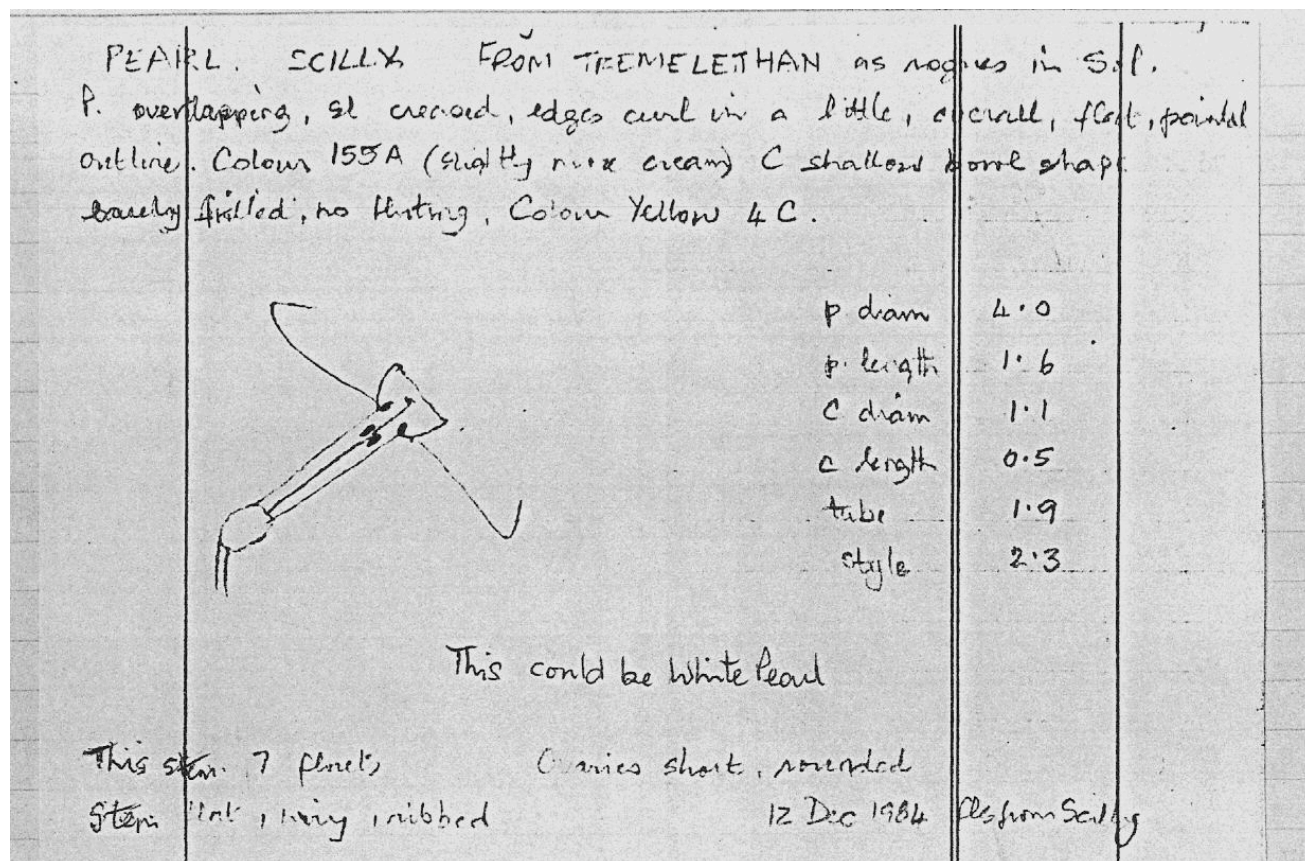 PEARL. SCILLY FROM TREMELETHAN as rogues in S.P.
P. overlapping, sl creased, edges curl in a little, overall, flat, pointed
outline. Colour 155A (slightly more cream) C shallow bowl shape
barely frilled, no fluting, Colour Yellow 4 C.
p diam 4.0
p. length 1.6
C diam 1.1
c length 0.5
tube 1.9
style 2.3
This could be White Pearl
This stem 7 florets Ovaries short, rounded
Stem ribbed 12 Dec 1984 fls from Scilly